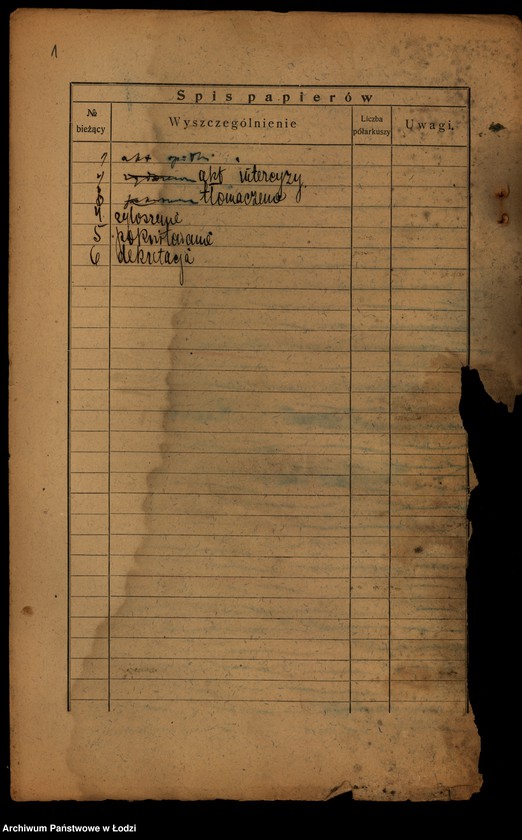 1
Spis papierów
№ bieżący
Wyszczególnienie
Liczba półarkuszy
Uwagi.
1 akt spółki
2 akt intercyzy
3 tłomaczenie
4 zgłoszenie
5 pokwitowanie
6 dekretacja
Archiwum Państwowe w Łodzi